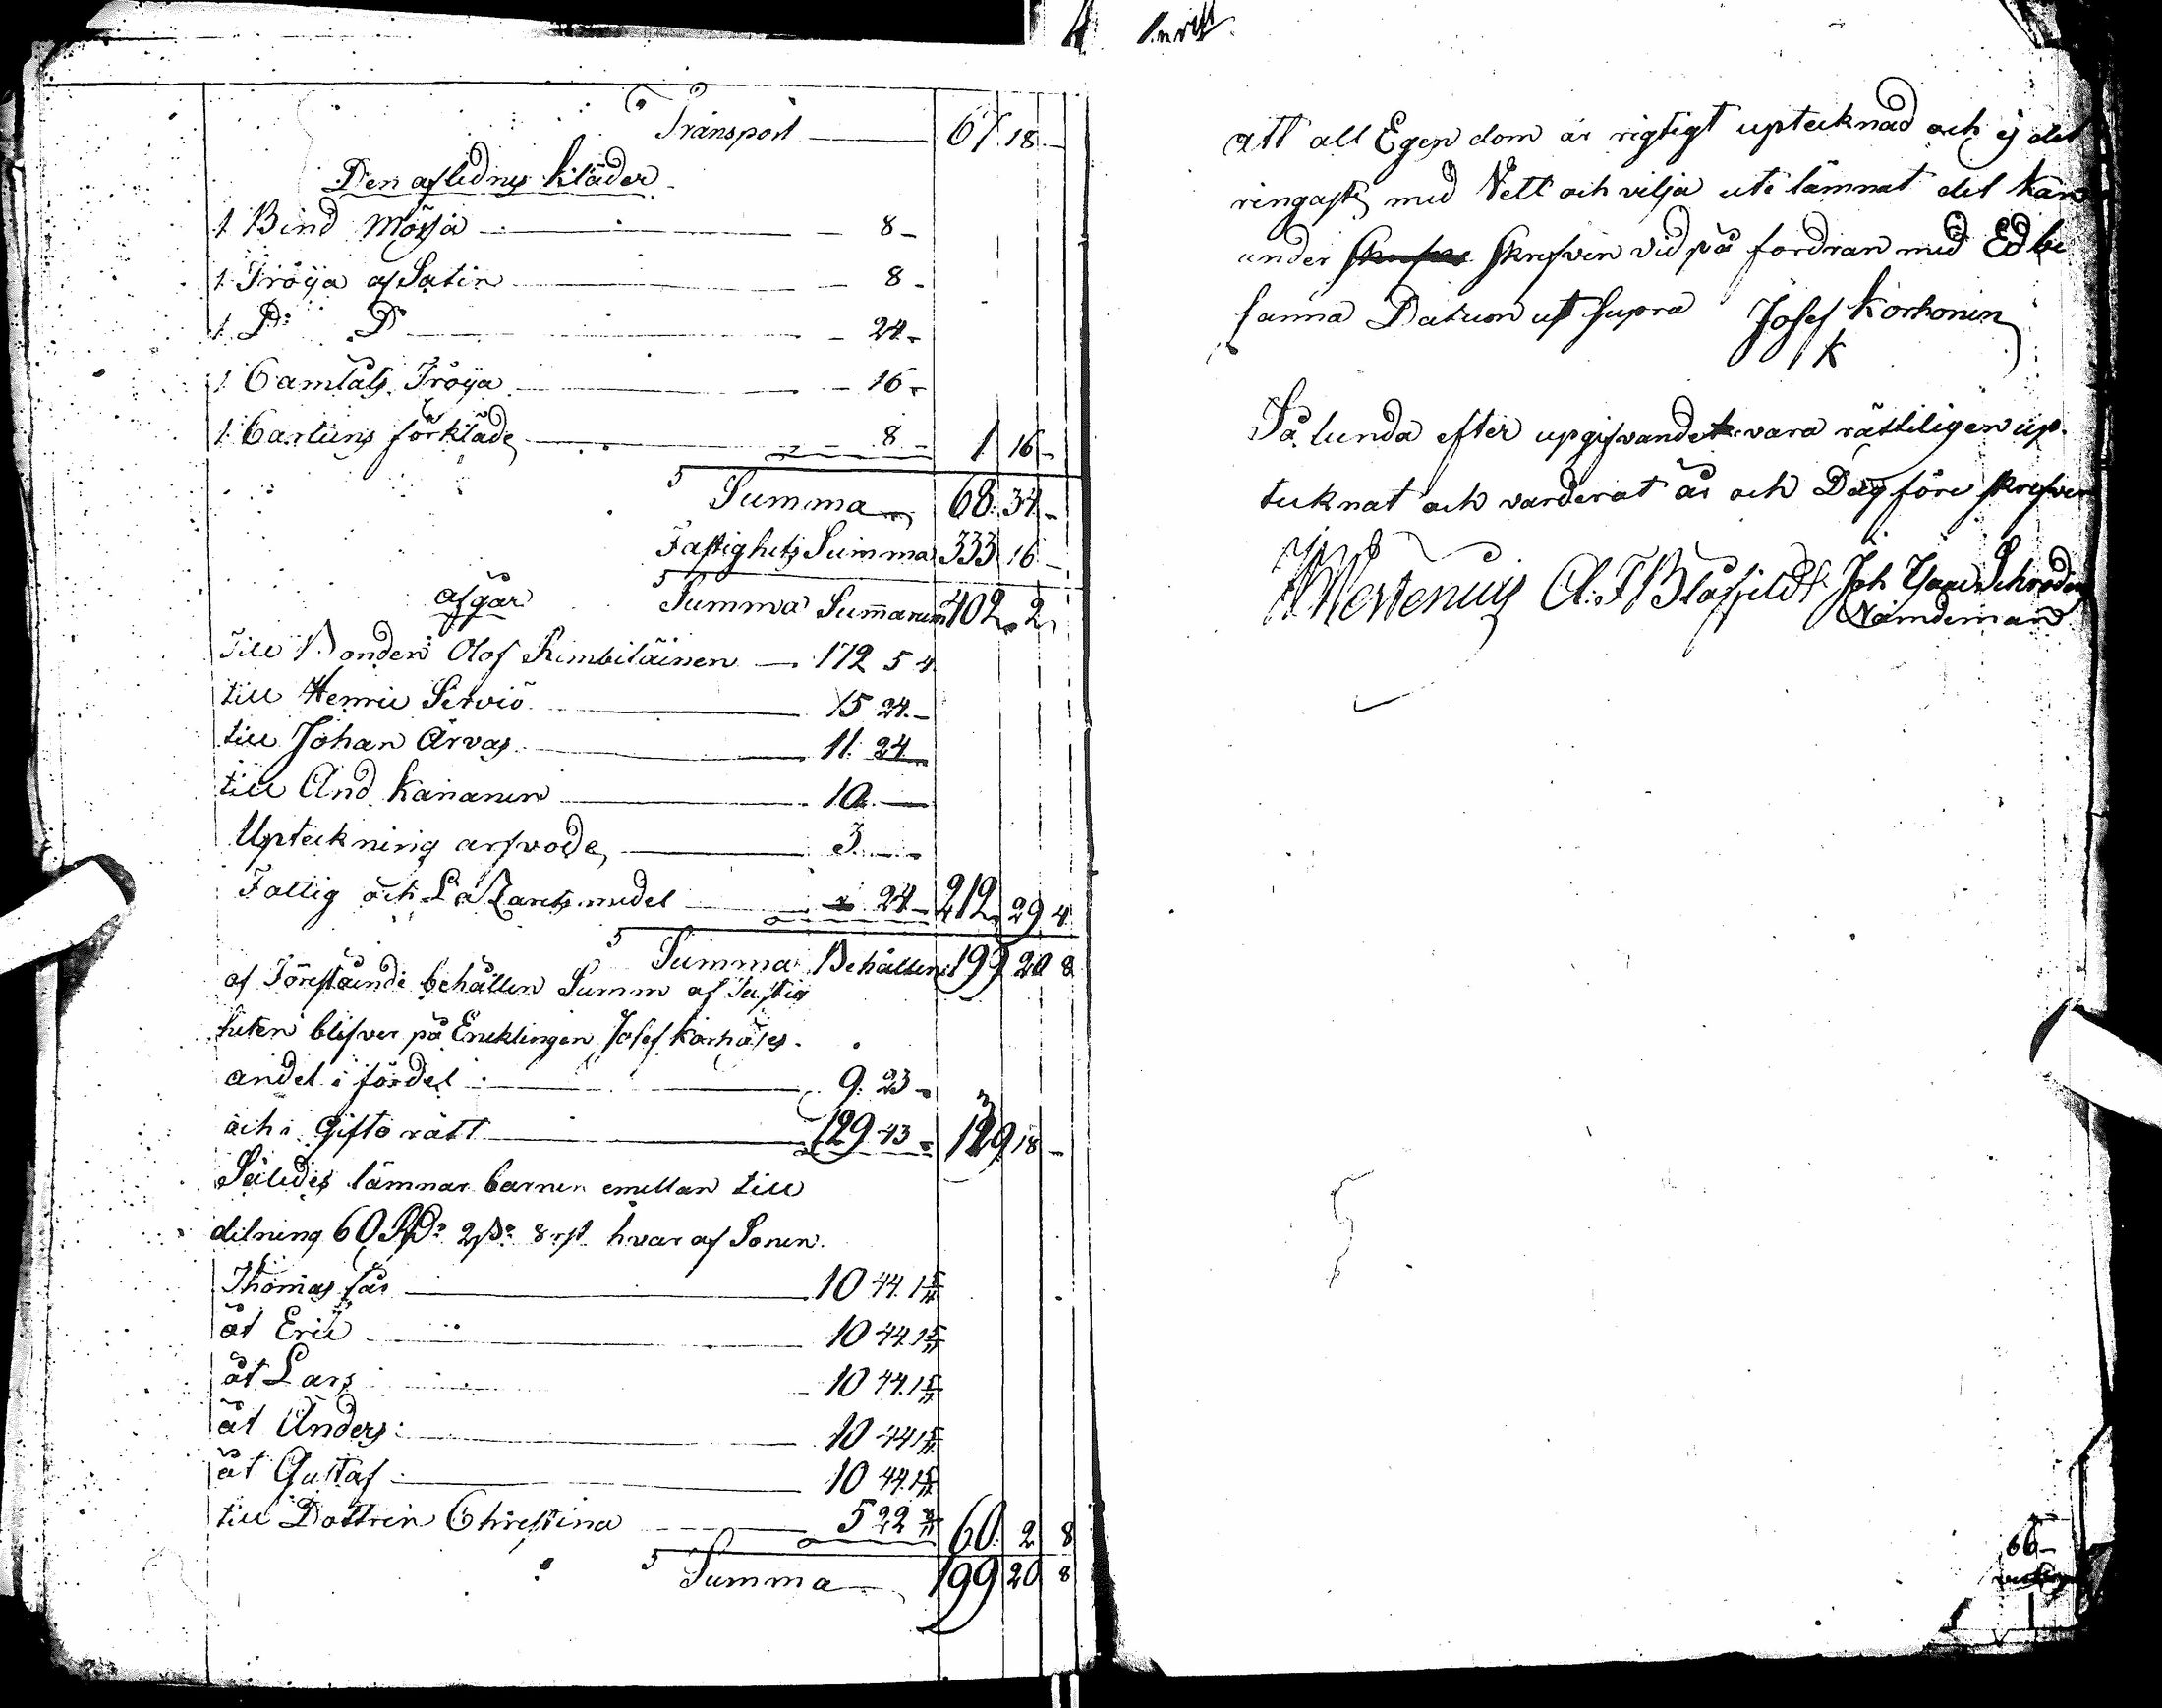 Transport — 67 18 –
Den aflidnes kläder
1 Bind Mössa — 8 –
1 Tröya af Satin — 8 –
1 Do Do — 24 –
1 Camlåts Tröya — 16 –
1 Cartuns förkläde — 8 – 1 16 –
Summa 68 34 –
Fastighets Summa 333 16 –
afgår Summa Summarum 402 2
Till Bonden Olof Kimbiläinen — 172 5 4
till Henric Servio — 15 24 –
till Johan Arvas — 11 24
till And Kananen — 10 —
Upteckning arfvode — 3 –
Fattig och Lazarets medel — 24 – 212 29 4
Summa Behållen 199 20 8
af Förestående behållen Summ af fastig
heten blifver på Encklingen Josef Korhoises
andel i fördel — 9 23 –
och i Gifto rätt — 129 43 – 139 18 –
Således lämnar barnen emellan till
delning 60 RD: 2 s: 8 rst hvar af Sonen
Thomas får — 10 44 1 5/11
åt Eric — 10 44 1 5/11
åt Lars — 10 44 1 5/11
åt Anders — 10 44 1 5/11
åt Gustaf — 10 44 1 5/11
till Dottren Christina — 5 22 60 2 8
Summa — 199 20 8
att all Egendom är rigtigt uptecknad och ej det
ringaste med Vett och vilja ute lämnat det kan
under skrefven vid på fordran med Ed be
sanna Datum ut supra Josef Korhonen
K
Så lunda efter upgifvandet vara rätteligen up-
tecknat och varderat år och Dag före skrefven
Mortenius A. F. Blåfield Joh Schroder
Nämdeman
66